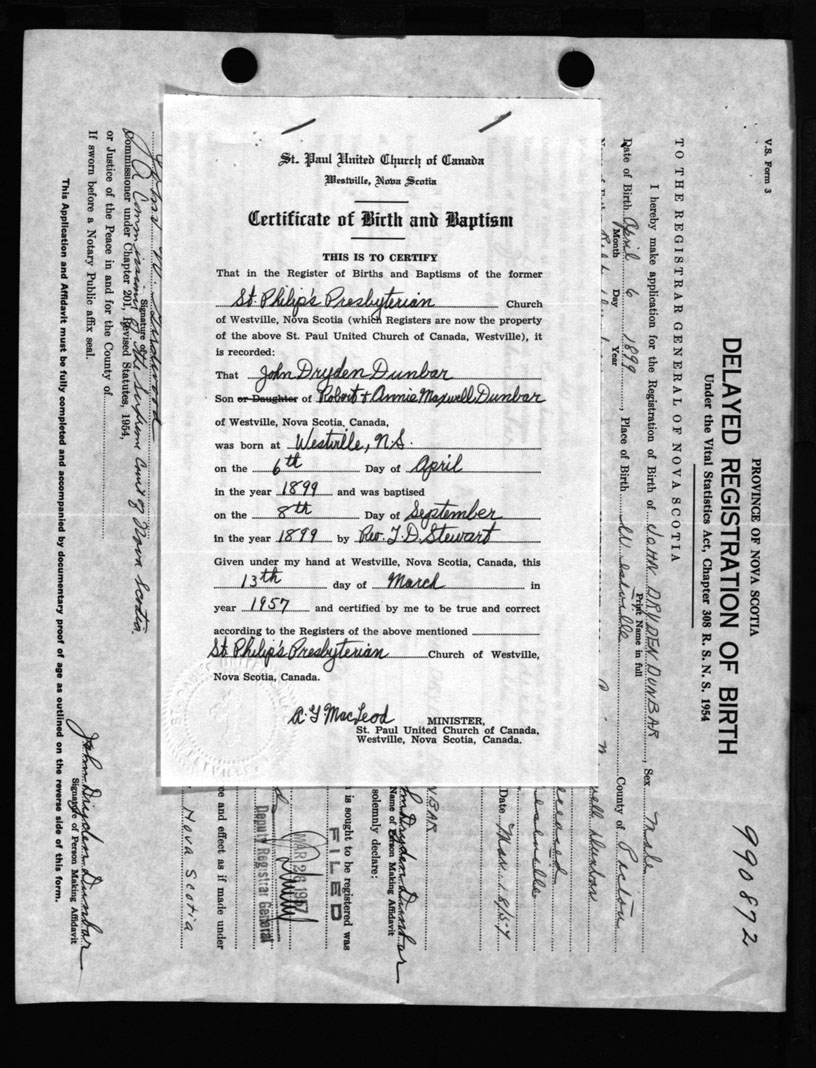 St. Paul United Church of Canada
Westville, Nova Scotia
Certificate of Birth and Baptism
THIS IS TO CERTIFY
That in the Register of Births and Baptisms of the former
St. Philip's Presbyterian Church
of Westville, Nova Scotia (which Registers are now the property
of the above St. Paul United Church of Canada, Westville), it
is recorded:
That John Dryden Dunbar
Son or Daughter of Robert & Annie Maxwell Dunbar
of Westville, Nova Scotia, Canada,
was born at Westville, N.S.
on the 6th Day of April
in the year 1899 and was baptised
on the 8th Day of September
in the year 1899 by Rev. T. D. Stewart
Given under my hand at Westville, Nova Scotia, Canada, this
13th day of March in
year 1957 and certified by me to be true and correct
according to the Registers of the above mentioned
St. Philip's Presbyterian Church of Westville,
Nova Scotia, Canada.
A. F MacLeod MINISTER,
St. Paul United Church of Canada,
Westville, Nova Scotia, Canada.
V.S. Form 3
990872
PROVINCE OF NOVA SCOTIA
DELAYED REGISTRATION OF BIRTH
Under the Vital Statistics Act, Chapter 308 R. S. N. S. 1954
TO THE REGISTRAR GENERAL OF NOVA SCOTIA
I hereby make application for the Registration of Birth of JOHN DRYDEN DUNBAR, Sex Male
Print Name in full
Date of Birth April 6 1899, Place of Birth Westville County of Pictou
Month Day Year
well Dunbar
Date Mar 18/57
NBAR
John Dryden Dunbar
Name of Person Making Affidavit
solemnly declare:
is sought to be registered was
FILED
MAR 26 1957
Deputy Registrar General
ce and effect as if made under
Nova Scotia
Signature of
A Commissioner of the Supreme Court of Nova Scotia
Commissioner under Chapter 201, Revised Statutes, 1954,
or Justice of the Peace in and for the County of
If sworn before a Notary Public affix seal.
John Dryden Dunbar
Signature of Person Making Affidavit
This Application and Affidavit must be fully completed and accompanied by documentary proof of age as outlined on the reverse side of this form.